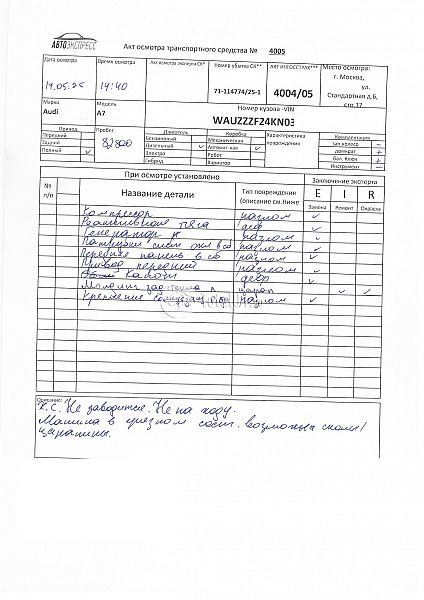 АВТОЭКСПРЕСС
Акт осмотра транспортного средства № 4005
Дата осмотра
Время осмотра
Акт осмотра эксперта СК*
Номер убытка СК**
АКТ ИНГОССТРАХ***
Место осмотра:
г. Москва,
ул.
Стандартная д.6,
стр.17
14.05.25
14:40
71-114774/25-1
4004/05
Марка
Модель
Номер кузова -VIN
Audi
A7
WAUZZZF24KN03
Привод
Пробег
Двигатель
Коробка
Характеристика повреждения
Комплектация
Передний
82800
Бензиновый
Механика
зап.колесо –
Задний
Дизельный ✓
Автомат-кая ✓
домкрат +
Полный ✓
Электро
Робот
бал. Ключ +
Гибрид
Вариатор
Инструмент –
При осмотре установлено
Заключение эксперта
№ п/п
Название детали
Тип повреждения (описание см.Ниже
E I R
Замена Ремонт Окраска
Компрессор излом ✓
тяга деф ✓
Генератор излом ✓
Патрубки излом ✓
Передняя панель в сб излом ✓
Привод передний излом ✓
Капот дефор ✓
Молдинг л царап ✓ ✓
Крепление излом ✓
Описание:
Х.С. Не заводится. Не на ходу.
Машина в грязном сост. возможны сколы/
царапины.